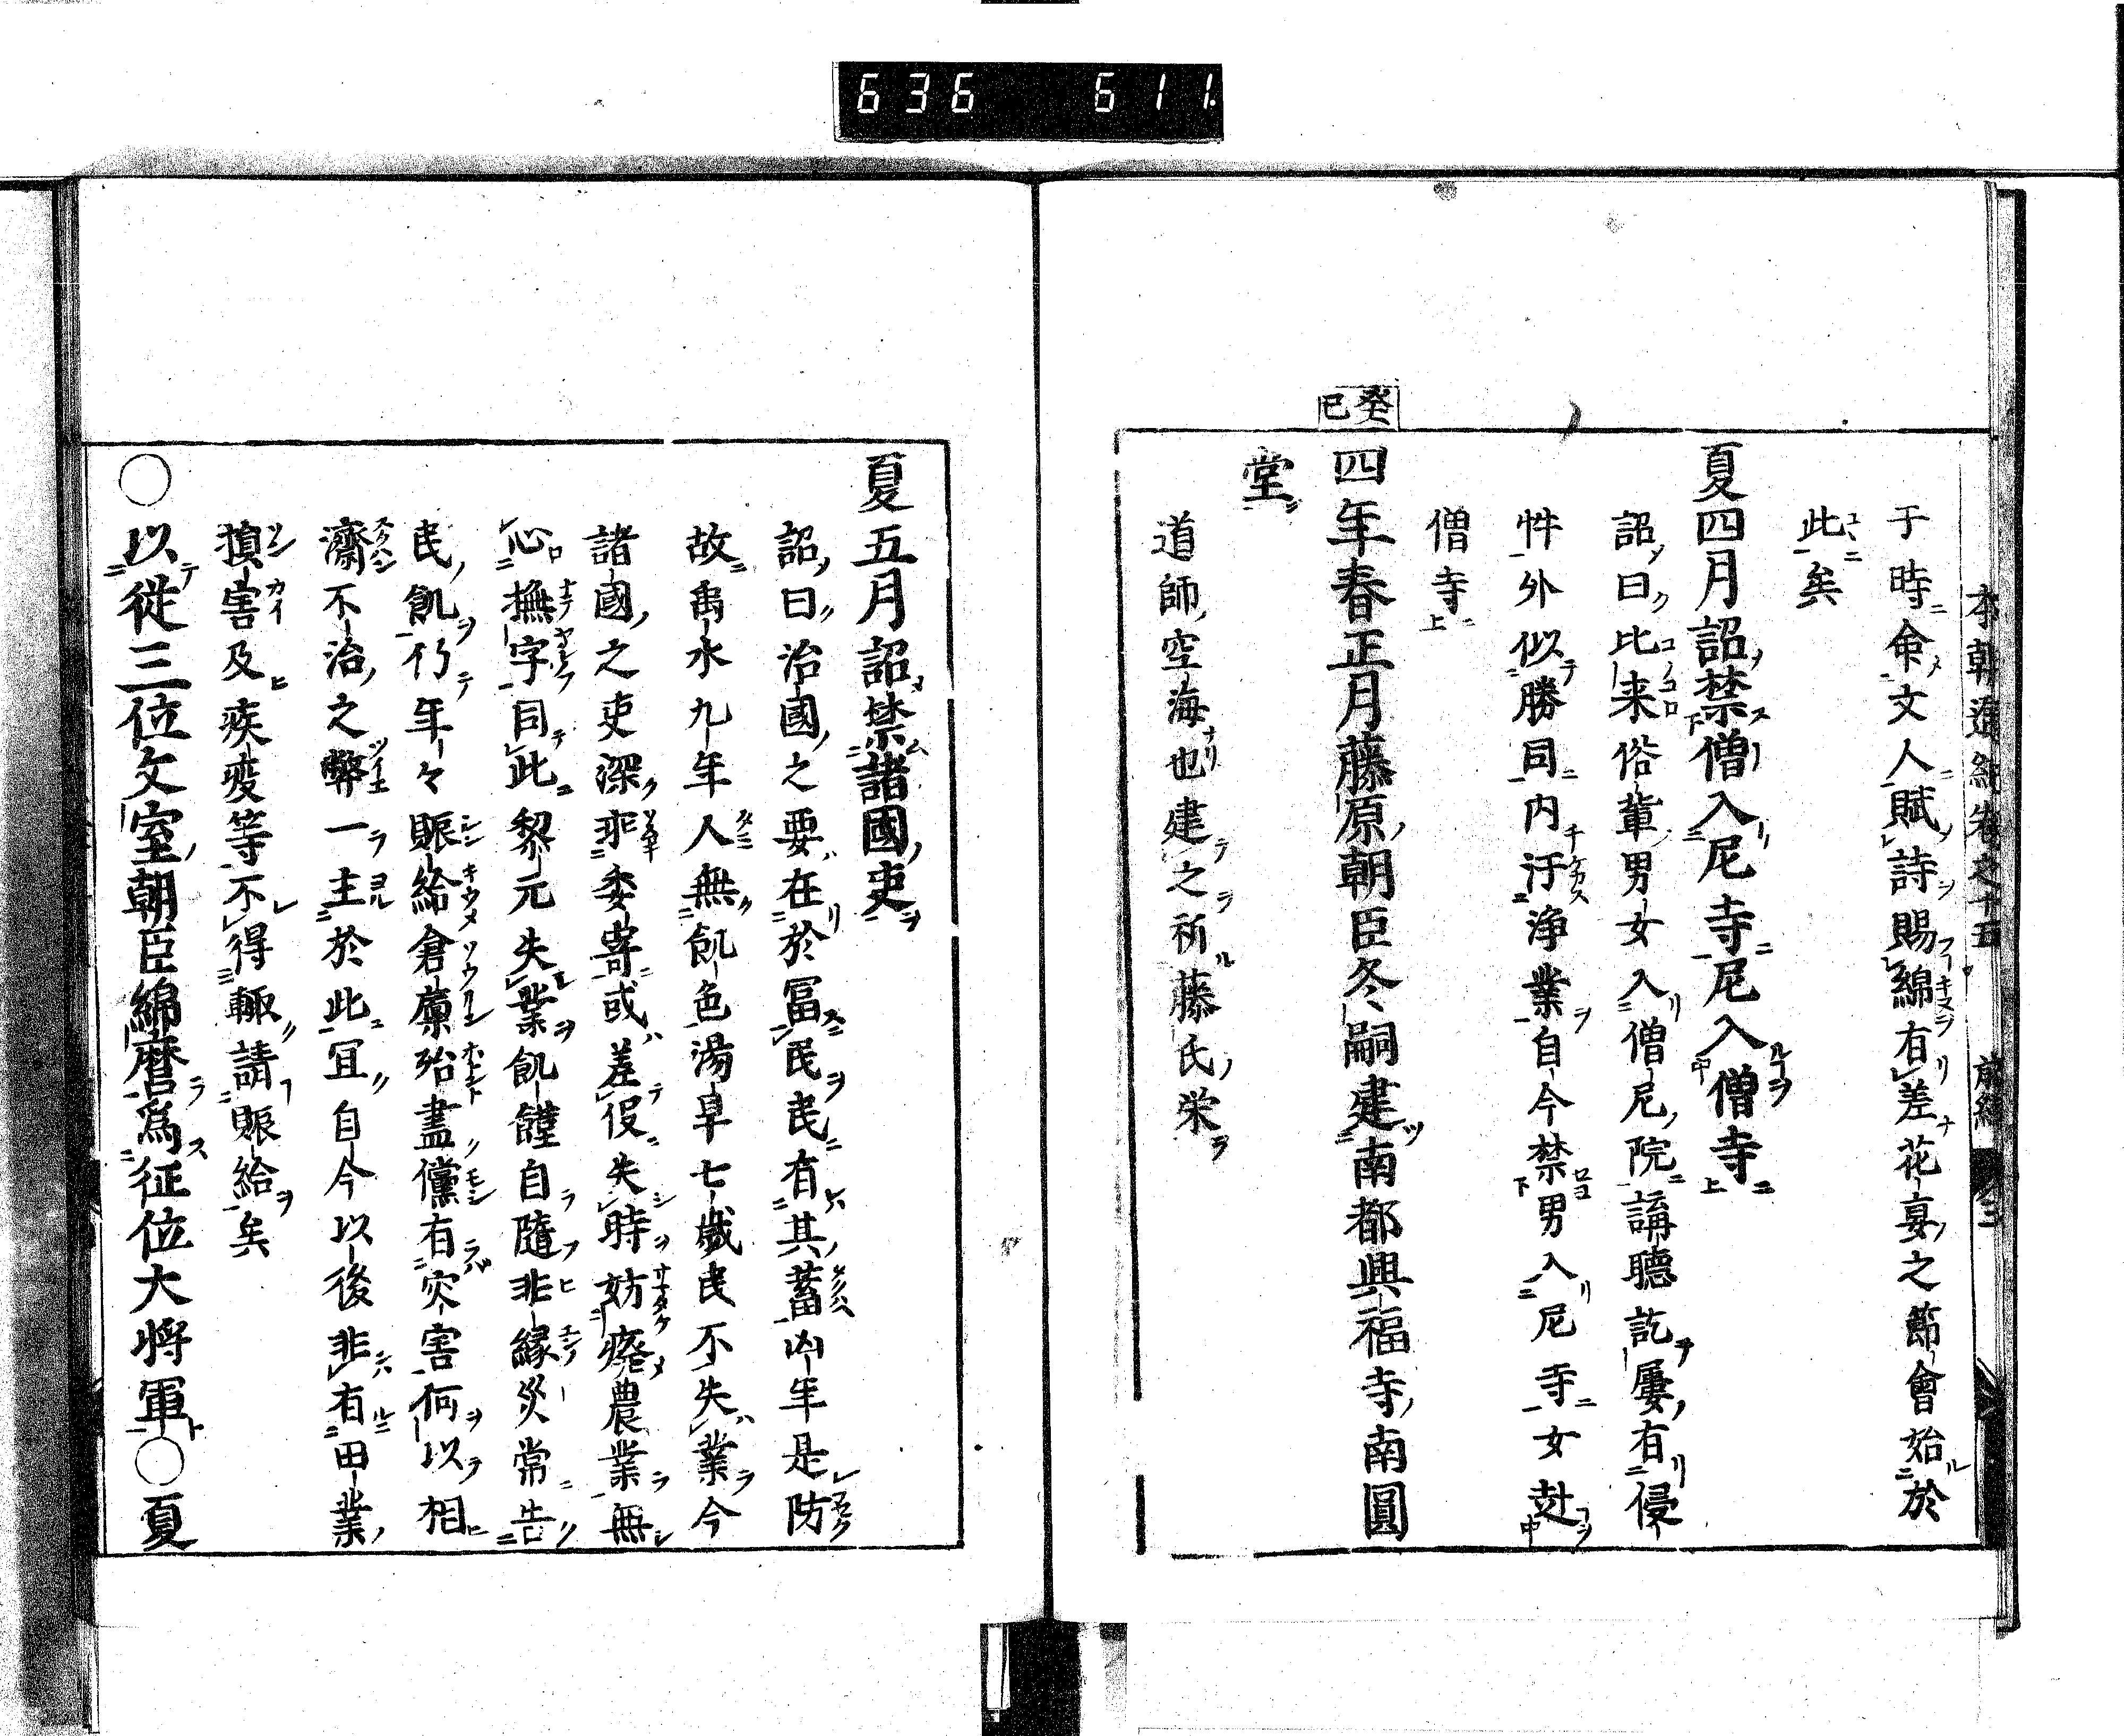 636 611
本朝通紀卷之十五 前編 三
于時命文人賦詩賜綿有差花宴之節會始於
此矣
夏四月詔禁僧入尼寺尼入僧寺
詔曰比来俗輩男女入僧尼院講聽訖屢有侵
忤外似勝同内汙浄業自今禁男入尼寺女赴
僧寺
癸巳
四年春正月藤原朝臣冬嗣建南都興福寺南圓
堂
道師空海也建之祈藤氏栄
夏五月詔禁諸國吏
詔曰治國之要在於冨民民有其蓄凶年是防
故禹水九年人無飢色湯旱七歳民不失業今
諸國之吏深乖委寄或差役失時妨癈農業無
心撫字同此黎元失業飢饉自隨非縁災常告
民飢仍年々賑給倉廩殆盡儻有灾害何以相
濟不治之弊一主於此冝自今以後非有田業
損害及疾疫等不得輙請賑給矣
○以従三位文室朝臣綿麿爲征位大将軍○夏